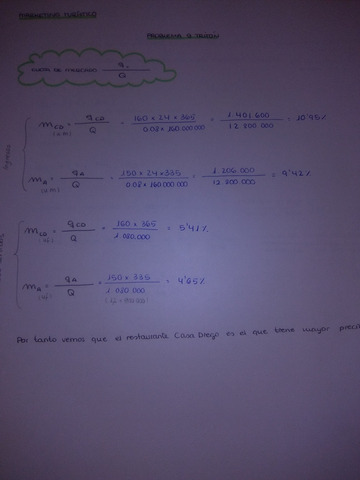 MARKETING TURÍSTICO
PROBLEMA
CUOTA DE MERCADO = q / Q
m CD = q CD / Q = 160 x 24 x 365 / 0.08 x 160.000.000 = 1.401.600 / 12.800.000 = 10'95%
m A = q A / Q = 150 x 24 x 335 / 0.08 x 160.000.000 = 1.206.000 / 12.800.000 = 9'42%
m CD = q CD / Q = 160 x 365 / 1.080.000 = 5'41%
m A = q A / Q = 150 x 335 / 1.080.000 = 4'65%
Por tanto vemos que el restaurante Casa Diego es el que tiene mayor